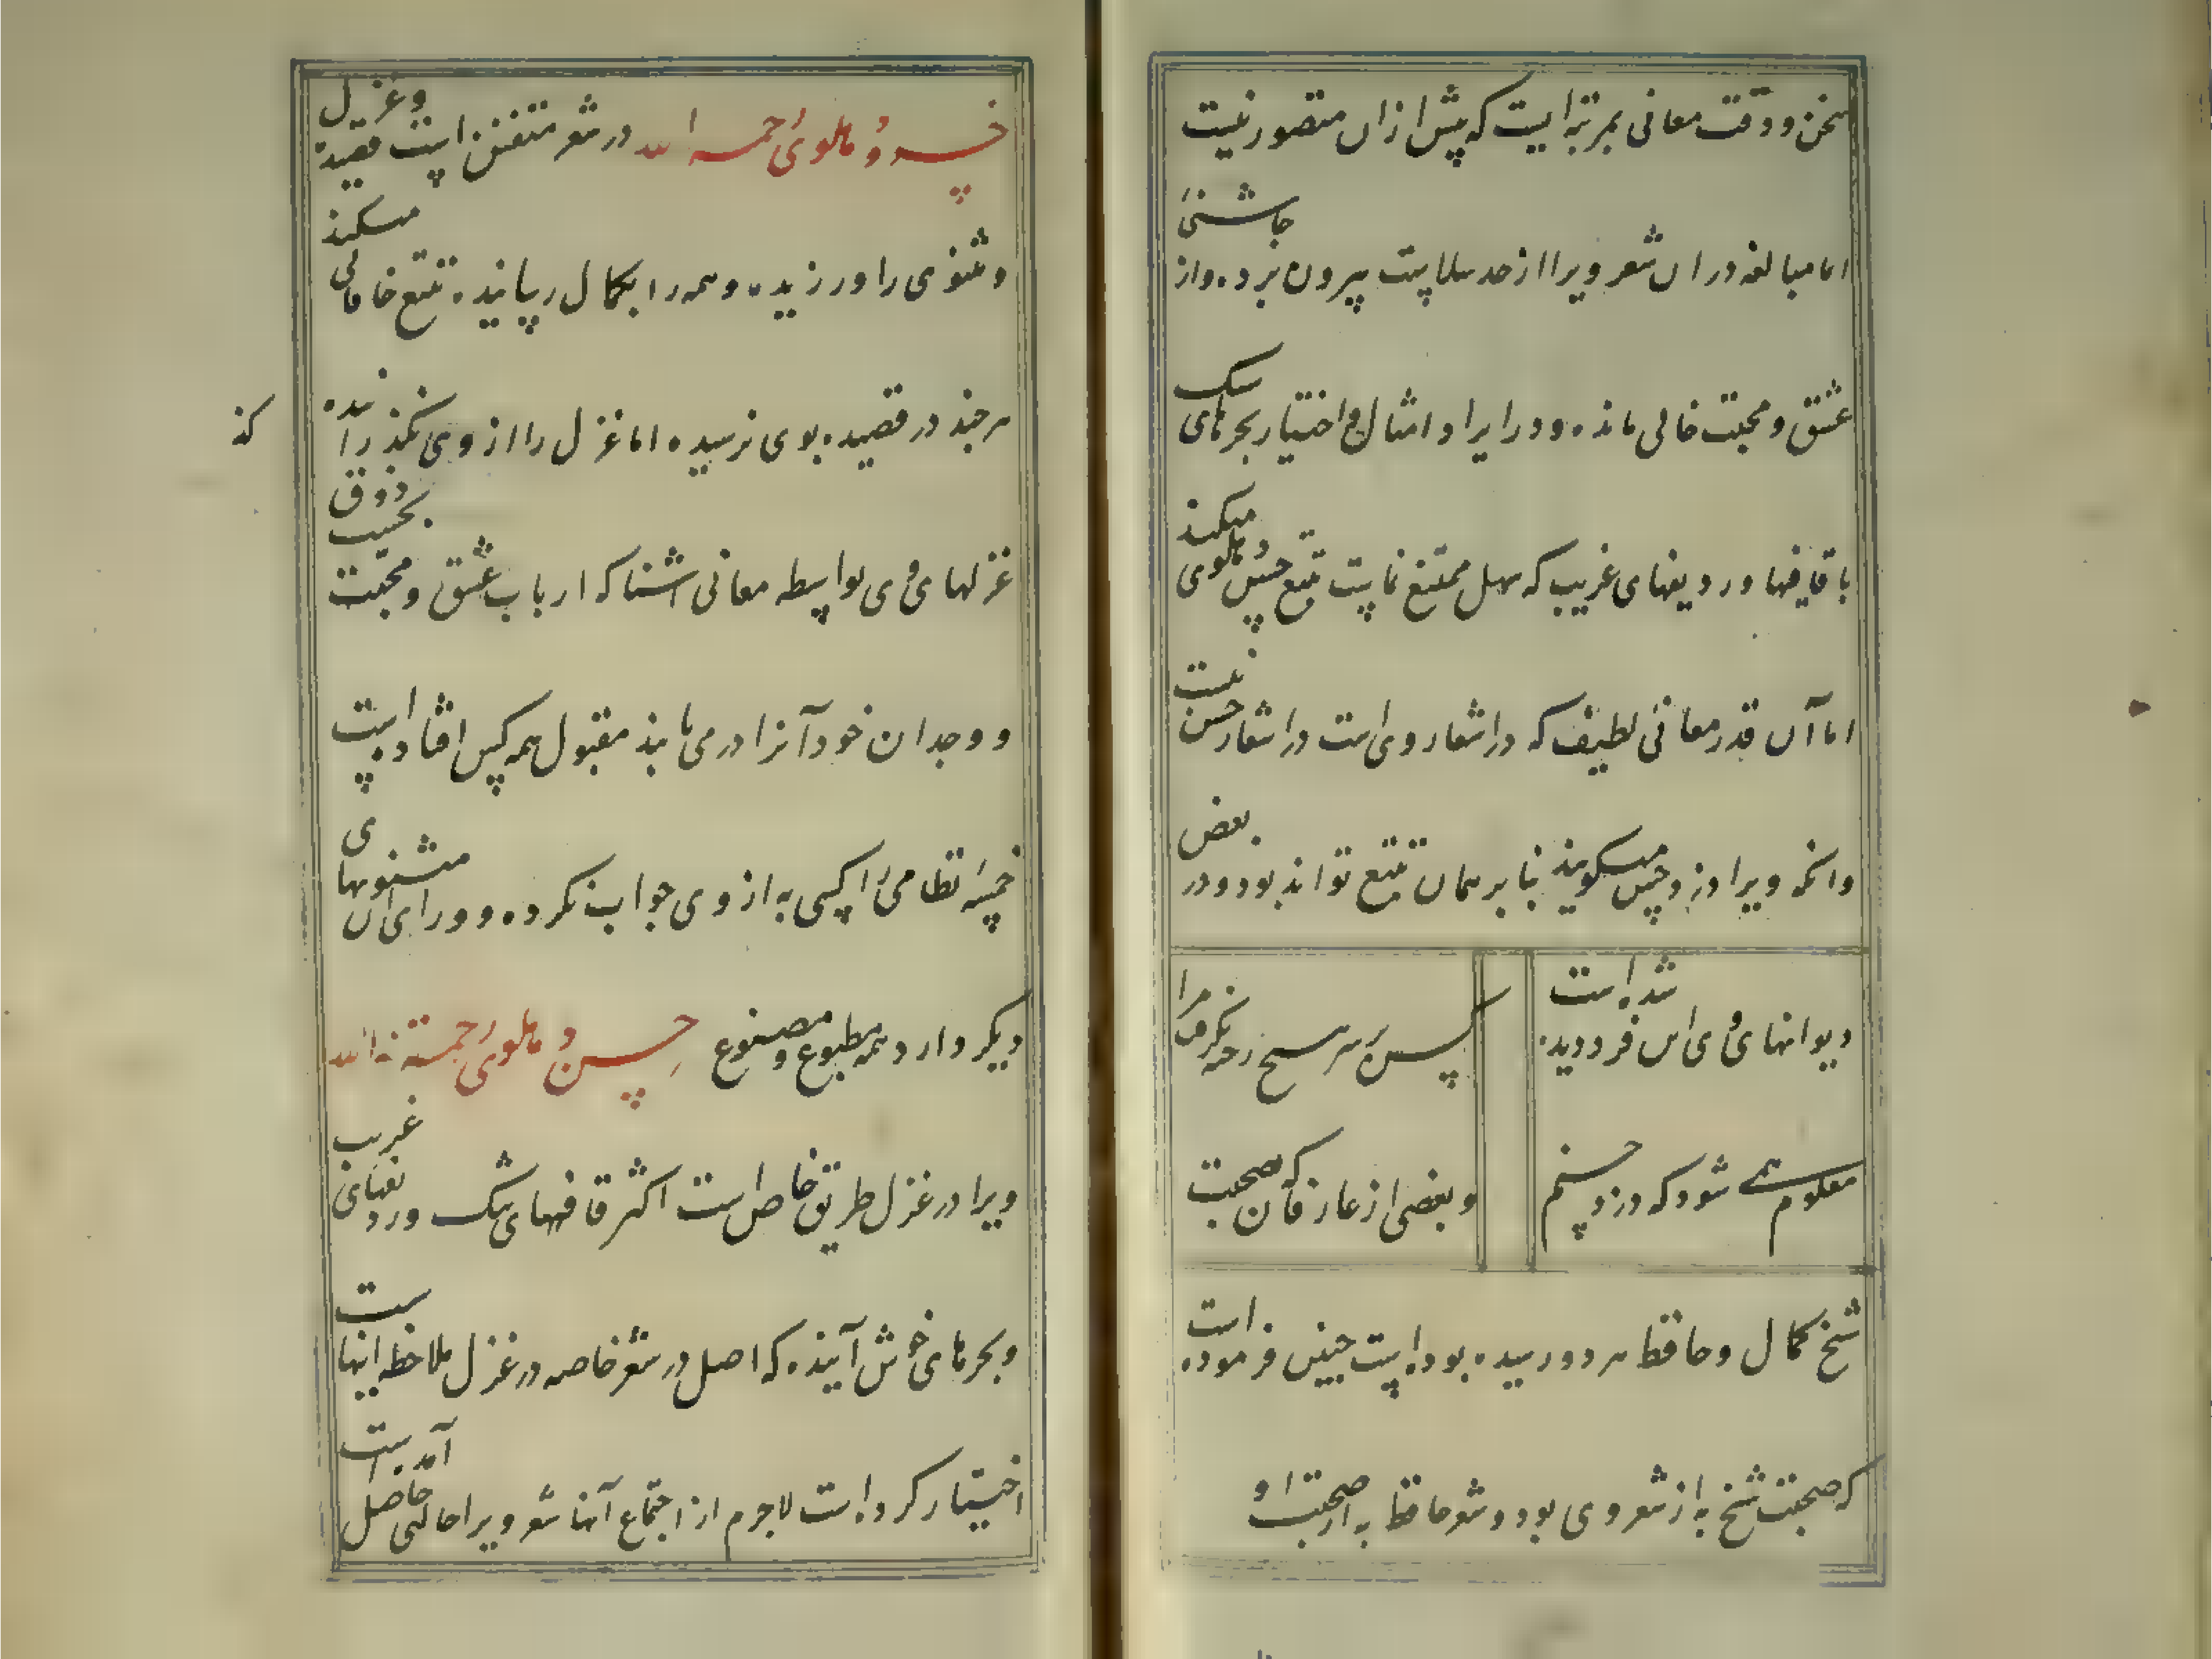 سخن و دقت معانی بمرتبه ایست که پیش ازان متصور نیست
اما مبالغه دران شعر ویرا از حد سلاست بیرون برده و از جاشنئ
عشق و محبت خالی مانده و در ایراد امثال و اختیار بحرهای سبک
با قافیها و ردیفهای غریب که سهل ممتنع نماست تتبع حسن دهلوی میکند
اما آن قدر معانی لطیف که در اشعار وی است در اشعار حسن نیست
وانکه ویرا دزد حسن میکویند بنا بر همان تتبع تواند بود و در بعض
دیوانهای وی این فرد دیده شده است
کس بر سر هیچ رخنه نکرفت مرا
معلوم همی شود که دزد حسنم
و بعضی از عارفان که صحبت
شیخ کمال و حافظ هر دو رسیده بوده است چنین فرموده است
که صحبت شیخ به از شعر وی بود و شعر حافظ به از صحبت او
خسرو دهلوی رحمه الله در شعر متفنن است قصیده و غزل
و مثنوی را ورزیده و همه را بکمال رسانیده تتبع خاقانی میکند
هر چند در قصیده بوی نرسیده اما غزل را از وی نکذرانیده
که
غزلهای وی بواسطه معانی آشنا که ارباب عشق و محبت بحسب ذوق
و وجدان خود آنرا درمی یابند مقبول همه کس افتاده است
خمسۀ نظامی را کسی به از وی جواب نکرده و ورای آن مثنویهای
دیکر دارد همه مطبوع و مصنوع حسن دهلوی رحمة الله
ویرا در غزل طریق خاص است اکثر قافیهای تنک و ردیفهای غریب
و بحرهای خوش آینده که اصل در شعر خاصه در غزل ملاحظه اینهاست
اختیار کرده است لاجرم از اجتماع آنها شعر ویرا حالتی حاصل آمده است